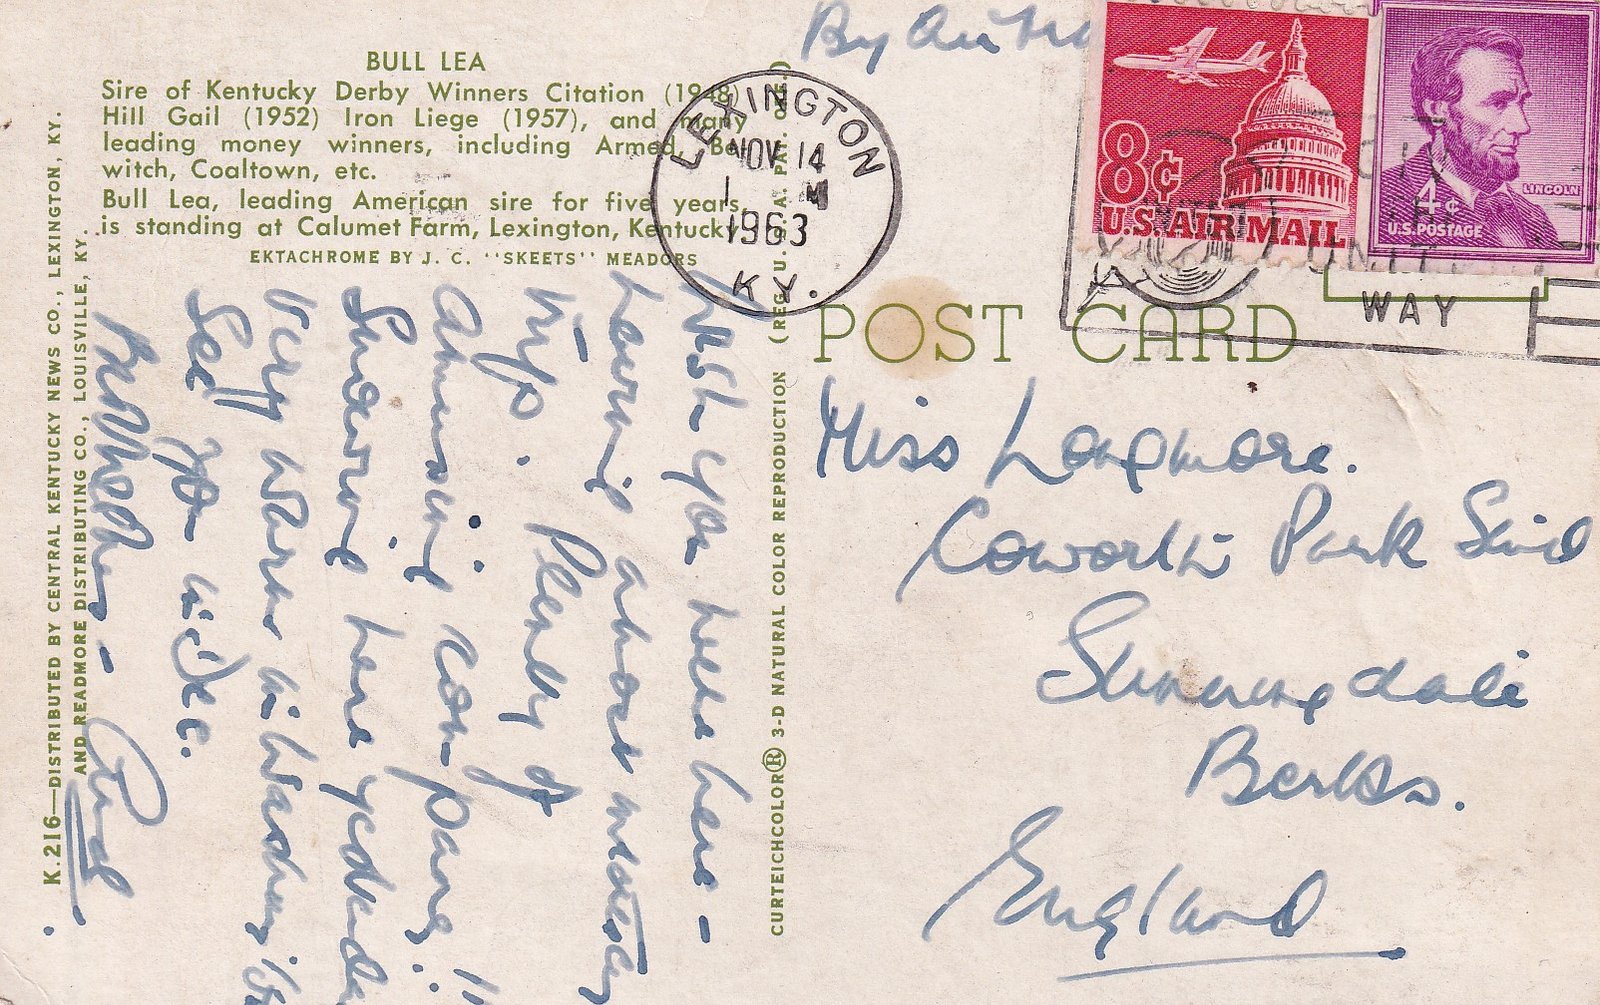 BULL LEA
Sire of Kentucky Derby Winners Citation (1948)
Hill Gail (1952) Iron Liege (1957), and many
leading money winners, including Armed, Be-
witch, Coaltown, etc.
Bull Lea, leading American sire for five years,
is standing at Calumet Farm, Lexington, Kentucky.
EKTACHROME BY J. C. "SKEETS" MEADORS
K.216—DISTRIBUTED BY CENTRAL KENTUCKY NEWS CO., LEXINGTON, KY.
AND READMORE DISTRIBUTING CO., LOUISVILLE, KY.
Wish you were here –
having
trip. Plenty of
amusing company!
Snowing here yesterday
Very warm in
See you
CURTEICHCOLOR® 3-D NATURAL COLOR REPRODUCTION (REG. U.S.A. PAT. OFF.)
By Air
LEXINGTON
NOV 14
1963
KY.
8¢
U.S. AIR MAIL
LINCOLN
4¢
U.S. POSTAGE
UNITED
WAY
POST CARD
Miss Longmore.
Coworth Park
Sunningdale
Berks.
England